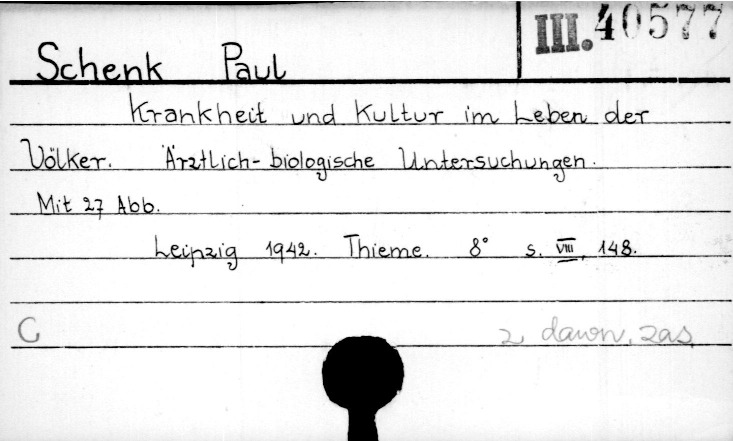 III. 40577
Schenk Paul
Krankheit und Kultur im Leben der
Völker. Ärztlich-biologische Untersuchungen.
Mit 27 Abb.
Leipzig 1942. Thieme. 8° s. VIII, 148.
C
z dawn. zas.